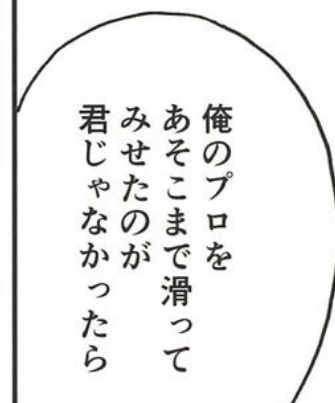 俺のプロを
あそこまで滑って
みせたのが
君じゃなかったら